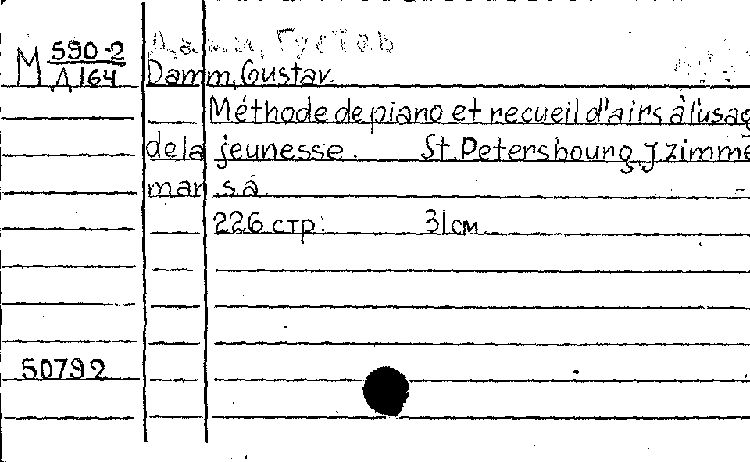 Дамм, Густав
М 590-2
Д 164
Damm, Gustav.
Méthode de piano et recueil d'airs à l'usag
de la jeunesse. St. Petersbourg, J Zimme
man s.a.
226 стр. 31 см.
50792